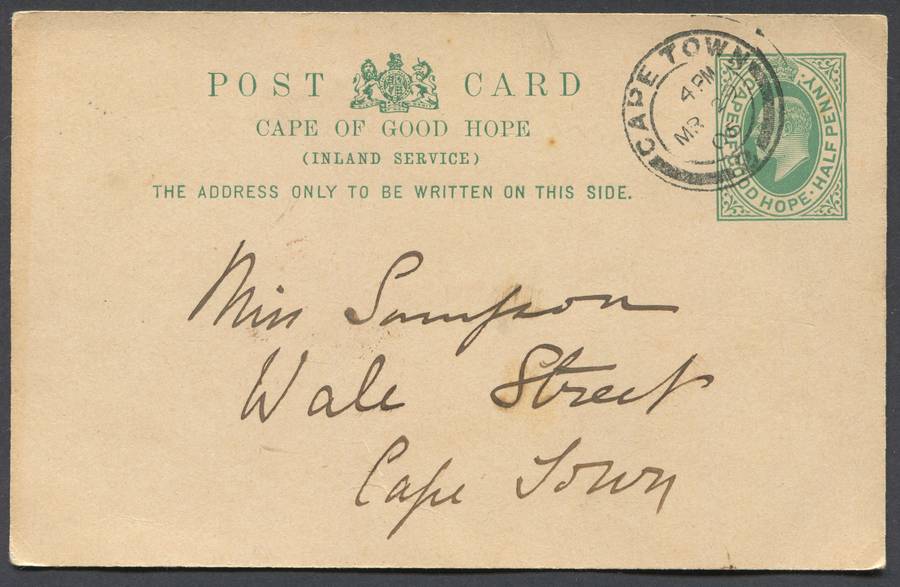 POST CARD
CAPE OF GOOD HOPE
(INLAND SERVICE)
THE ADDRESS ONLY TO BE WRITTEN ON THIS SIDE.
CAPE TOWN
4 PM
MR
06
CAPE OF GOOD HOPE · HALF PENNY.
Miss Sampson
Wale Street
Cape Town